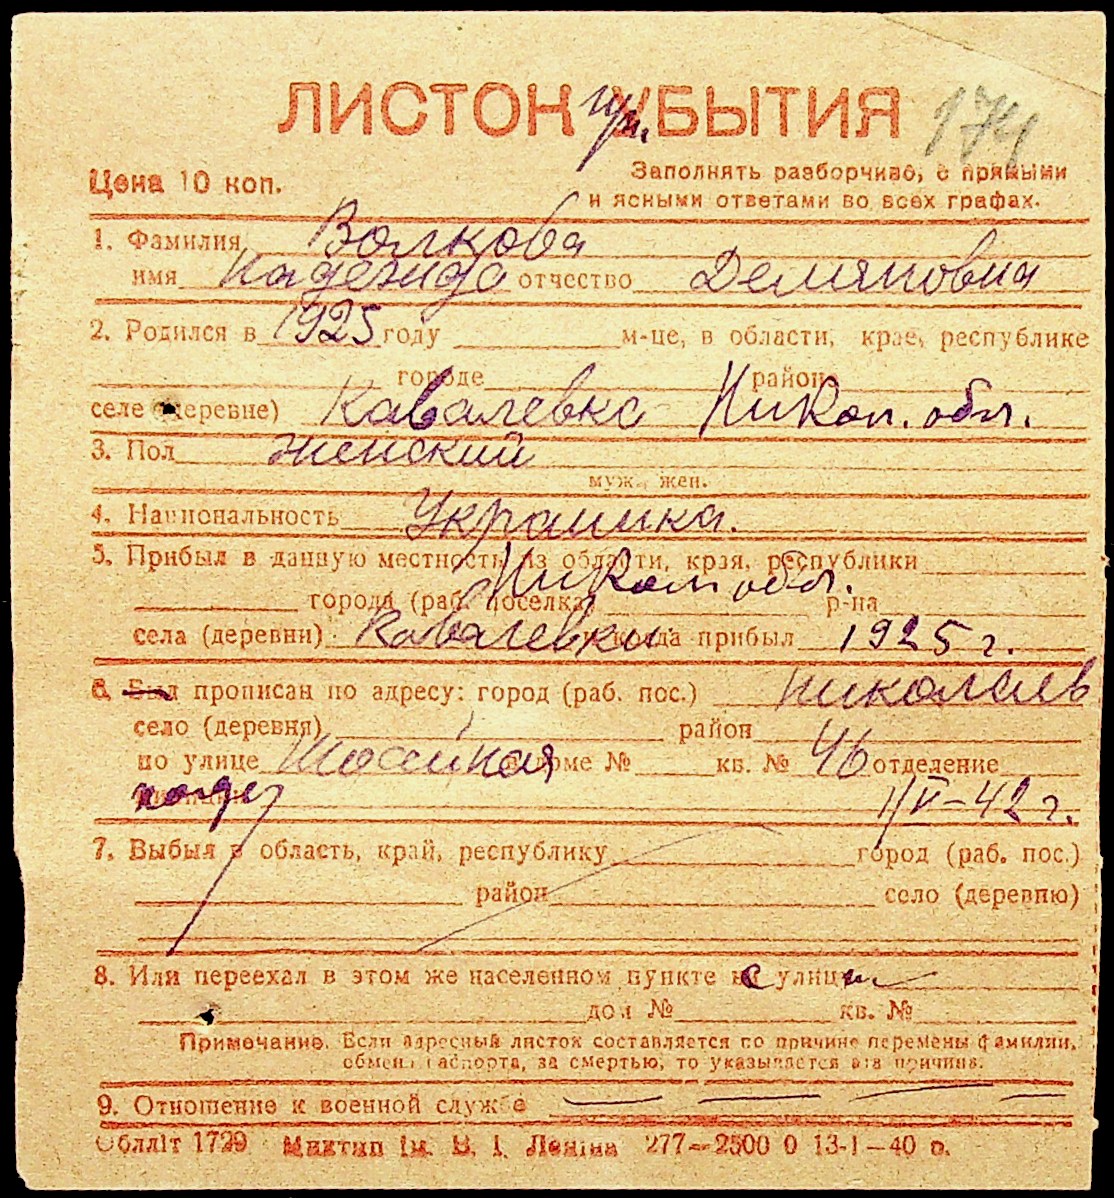 ЛИСТОК при. УБЫТИЯ 174
Цена 10 коп.
Заполнять разборчиво, с прямыми
и ясными ответами во всех графах.
1. Фамилия Волкова
имя Надежда отчество Демяновна
2. Родился в 1925 году м-це, в области, крае, республике
городе районе
селе (деревне) Кавалевка Никол. обл.
3. Пол женский
муж., жен.
4. Национальность Украинка.
5. Прибыл в данную местность из области, края, республики
Никол обл.
города (раб. поселка) р-на
села (деревни) Кавалевки и когда прибыл 1925 г.
6. Был прописан по адресу: город (раб. пос.) Николаев
село (деревня) район
по улице дом № кв. № 46 отделение
1/V-42 г.
7. Выбыл в область, край, республику город (раб. пос.)
район село (деревню)
8. Или переехал в этом же населенном пункте с улицы
дом № кв. №
Примечание. Если адресный листок составляется по причине перемены фамилии,
обмена паспорта, за смертью, то указывается эта причина.
9. Отношение к военной службе
Обллiт 1729 Миктип iм. В. I. Ленiна 277—2500 0 13-I-40 р.